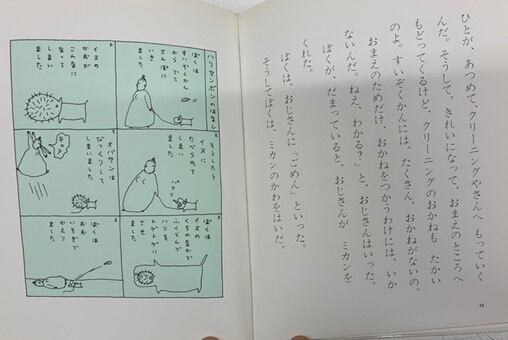 ひとが、あつめて、クリーニングやさんへ もっていく
んだ。そうして、きれいになって、おまえのところへ
もどってくるけど、クリーニングのおかねも たかい
のよ。すいぞくかんには、たくさん、おかねがないの。
おまえのためだけ、おかねをつかうわけには、いか
ないんだ。ねえ、わかる？」と、おじさんはいった。
ぼくが、だまっていると、おじさんが ミカンを
くれた。
ぼくは、おじさんに「ごめん」といった。
そうしてぼくは、ミカンのかわをはいだ。
ハリセンボンのはなし
ぼくは
すいぞくかん
から でて
さんぽに
いき
ました
そうしたら
イヌに
たべられて
しまい
ました
パクリ
ぼくは
イヌの
くちのなかで
ふくらんで
ハリを
トゲトゲに
させ
イヌの
かおが
こんなに
なって
しまい
ました
オバサンは
びっくりして
しまいました
キャア
ぼくは
おお
いそぎで
かえり
ました